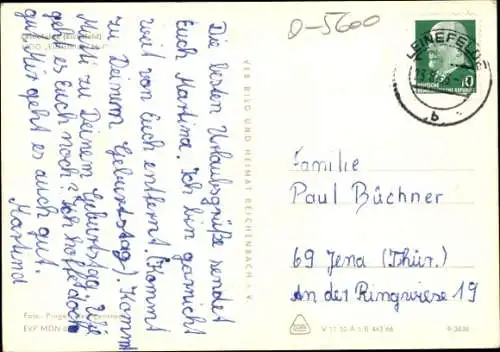 D-5600
LEINEFELDE
10
b
Leinefelde (Eichsfeld)
Die besten Urlaubsgrüße sendet
Euch Martina. Ich bin garnicht
weit von Euch entfernt. (Kommt
zu Deinem Geburtstag). Kommt
Mutti zu Deinem Geburtstag. Wie
geht es euch noch? Ich hoffe doch
gut. Mir geht es auch gut.
Martina
VEB BILD UND HEIMAT REICHENBACH i. V.
Familie
Paul Büchner
69 Jena (Thür.)
An der Ringwiese 19
Foto:
EVP MDN
V 11 50 A 1/B 443/66